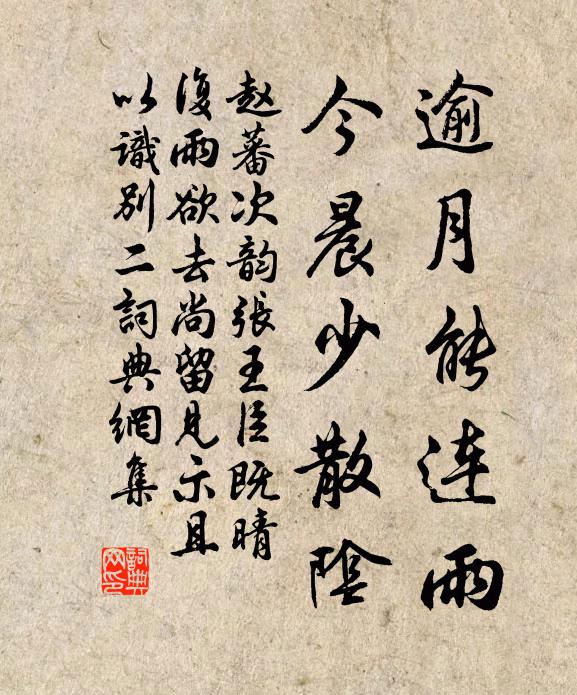 逾月能连雨
今晨少散陰
赵蕃次韵張王臣既晴
復雨欲去尚留見示且
以識别二詞典網集
詞典网印